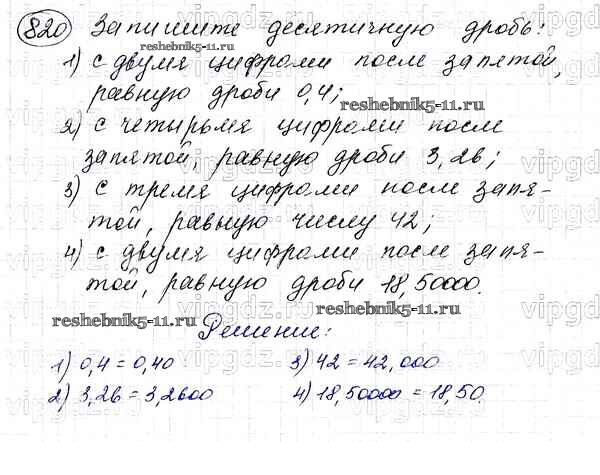 820 Запишите десятичную дробь:
reshebnik5-11.ru
1) с двумя цифрами после запятой,
равную дроби 0,4;
reshebnik5-11.ru
2) с четырьмя цифрами после
запятой, равную дроби 3,26;
3) с тремя цифрами после запя-
той, равную числу 42;
4) с двумя цифрами после запя-
той, равную дроби 18,50000.
reshebnik5-11.ru
reshebnik5-11.ru
Решение:
1) 0,4 = 0,40 3) 42 = 42,000
2) 3,26 = 3,2600 4) 18,50000 = 18,50.